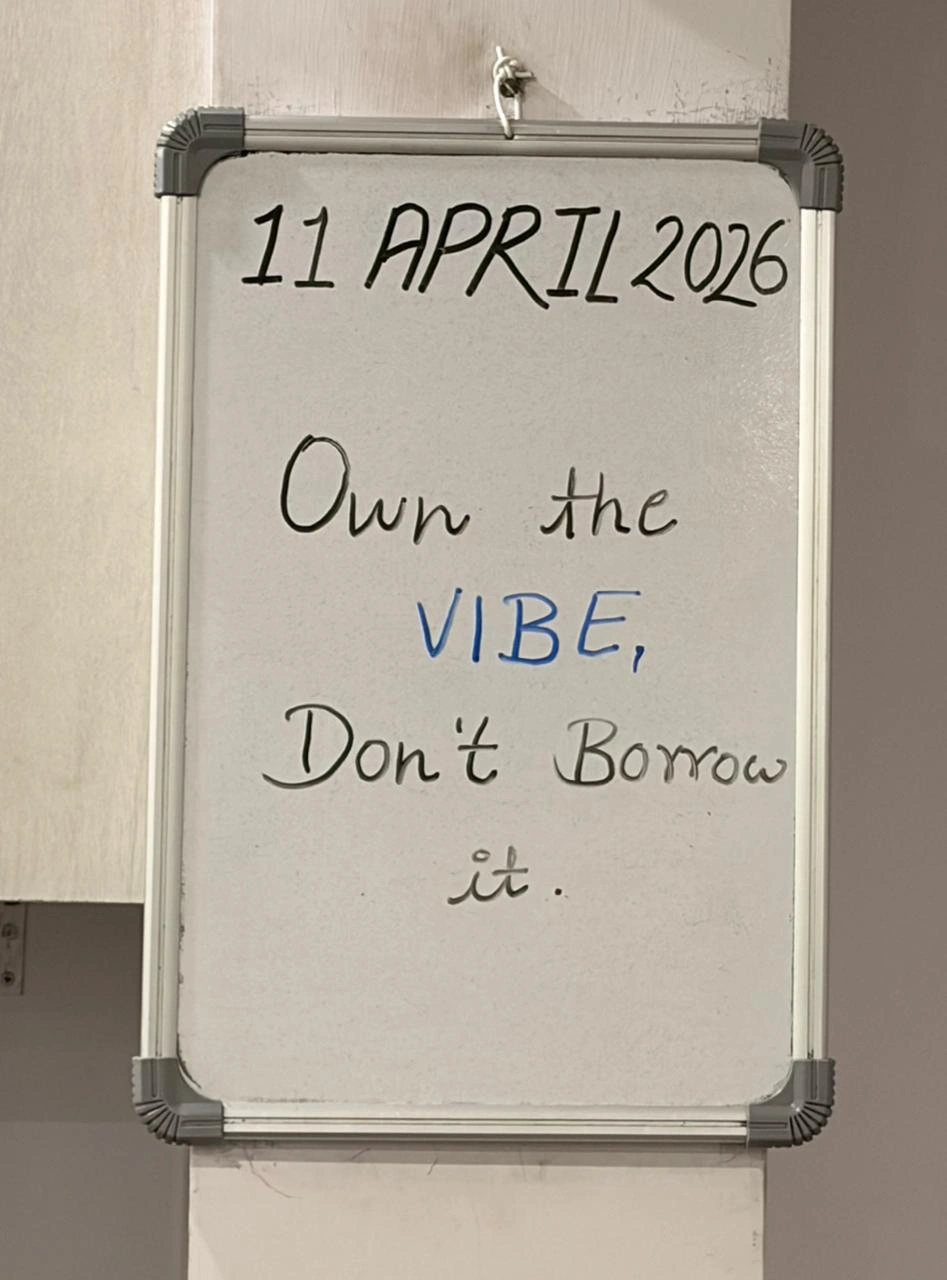 11 APRIL 2026
Own the
VIBE,
Don't Borrow
it.